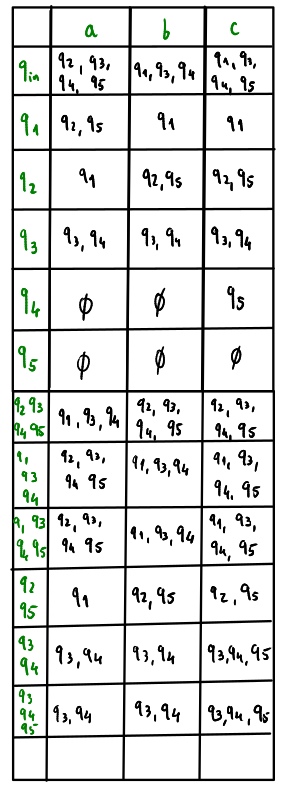 a b c
qin q2, q3, q4, q5 q1, q3, q4 q1, q3, q4, q5
q1 q2, q5 q1 q1
q2 q1 q2, q5 q2, q5
q3 q3, q4 q3, q4 q3, q4
q4 ∅ ∅ q5
q5 ∅ ∅ ∅
q2 q3 q4 q5 q1, q3, q4 q2, q3, q4, q5 q2, q3, q4, q5
q1, q3 q4 q2, q3, q4 q5 q1, q3, q4 q1, q3, q4, q5
q1, q3 q4, q5 q2, q3, q4 q5 q1, q3, q4 q1, q3, q4, q5
q2 q5 q1 q2, q5 q2, q5
q3 q4 q3, q4 q3, q4 q3, q4, q5
q3 q4 q5 q3, q4 q3, q4 q3, q4, q5